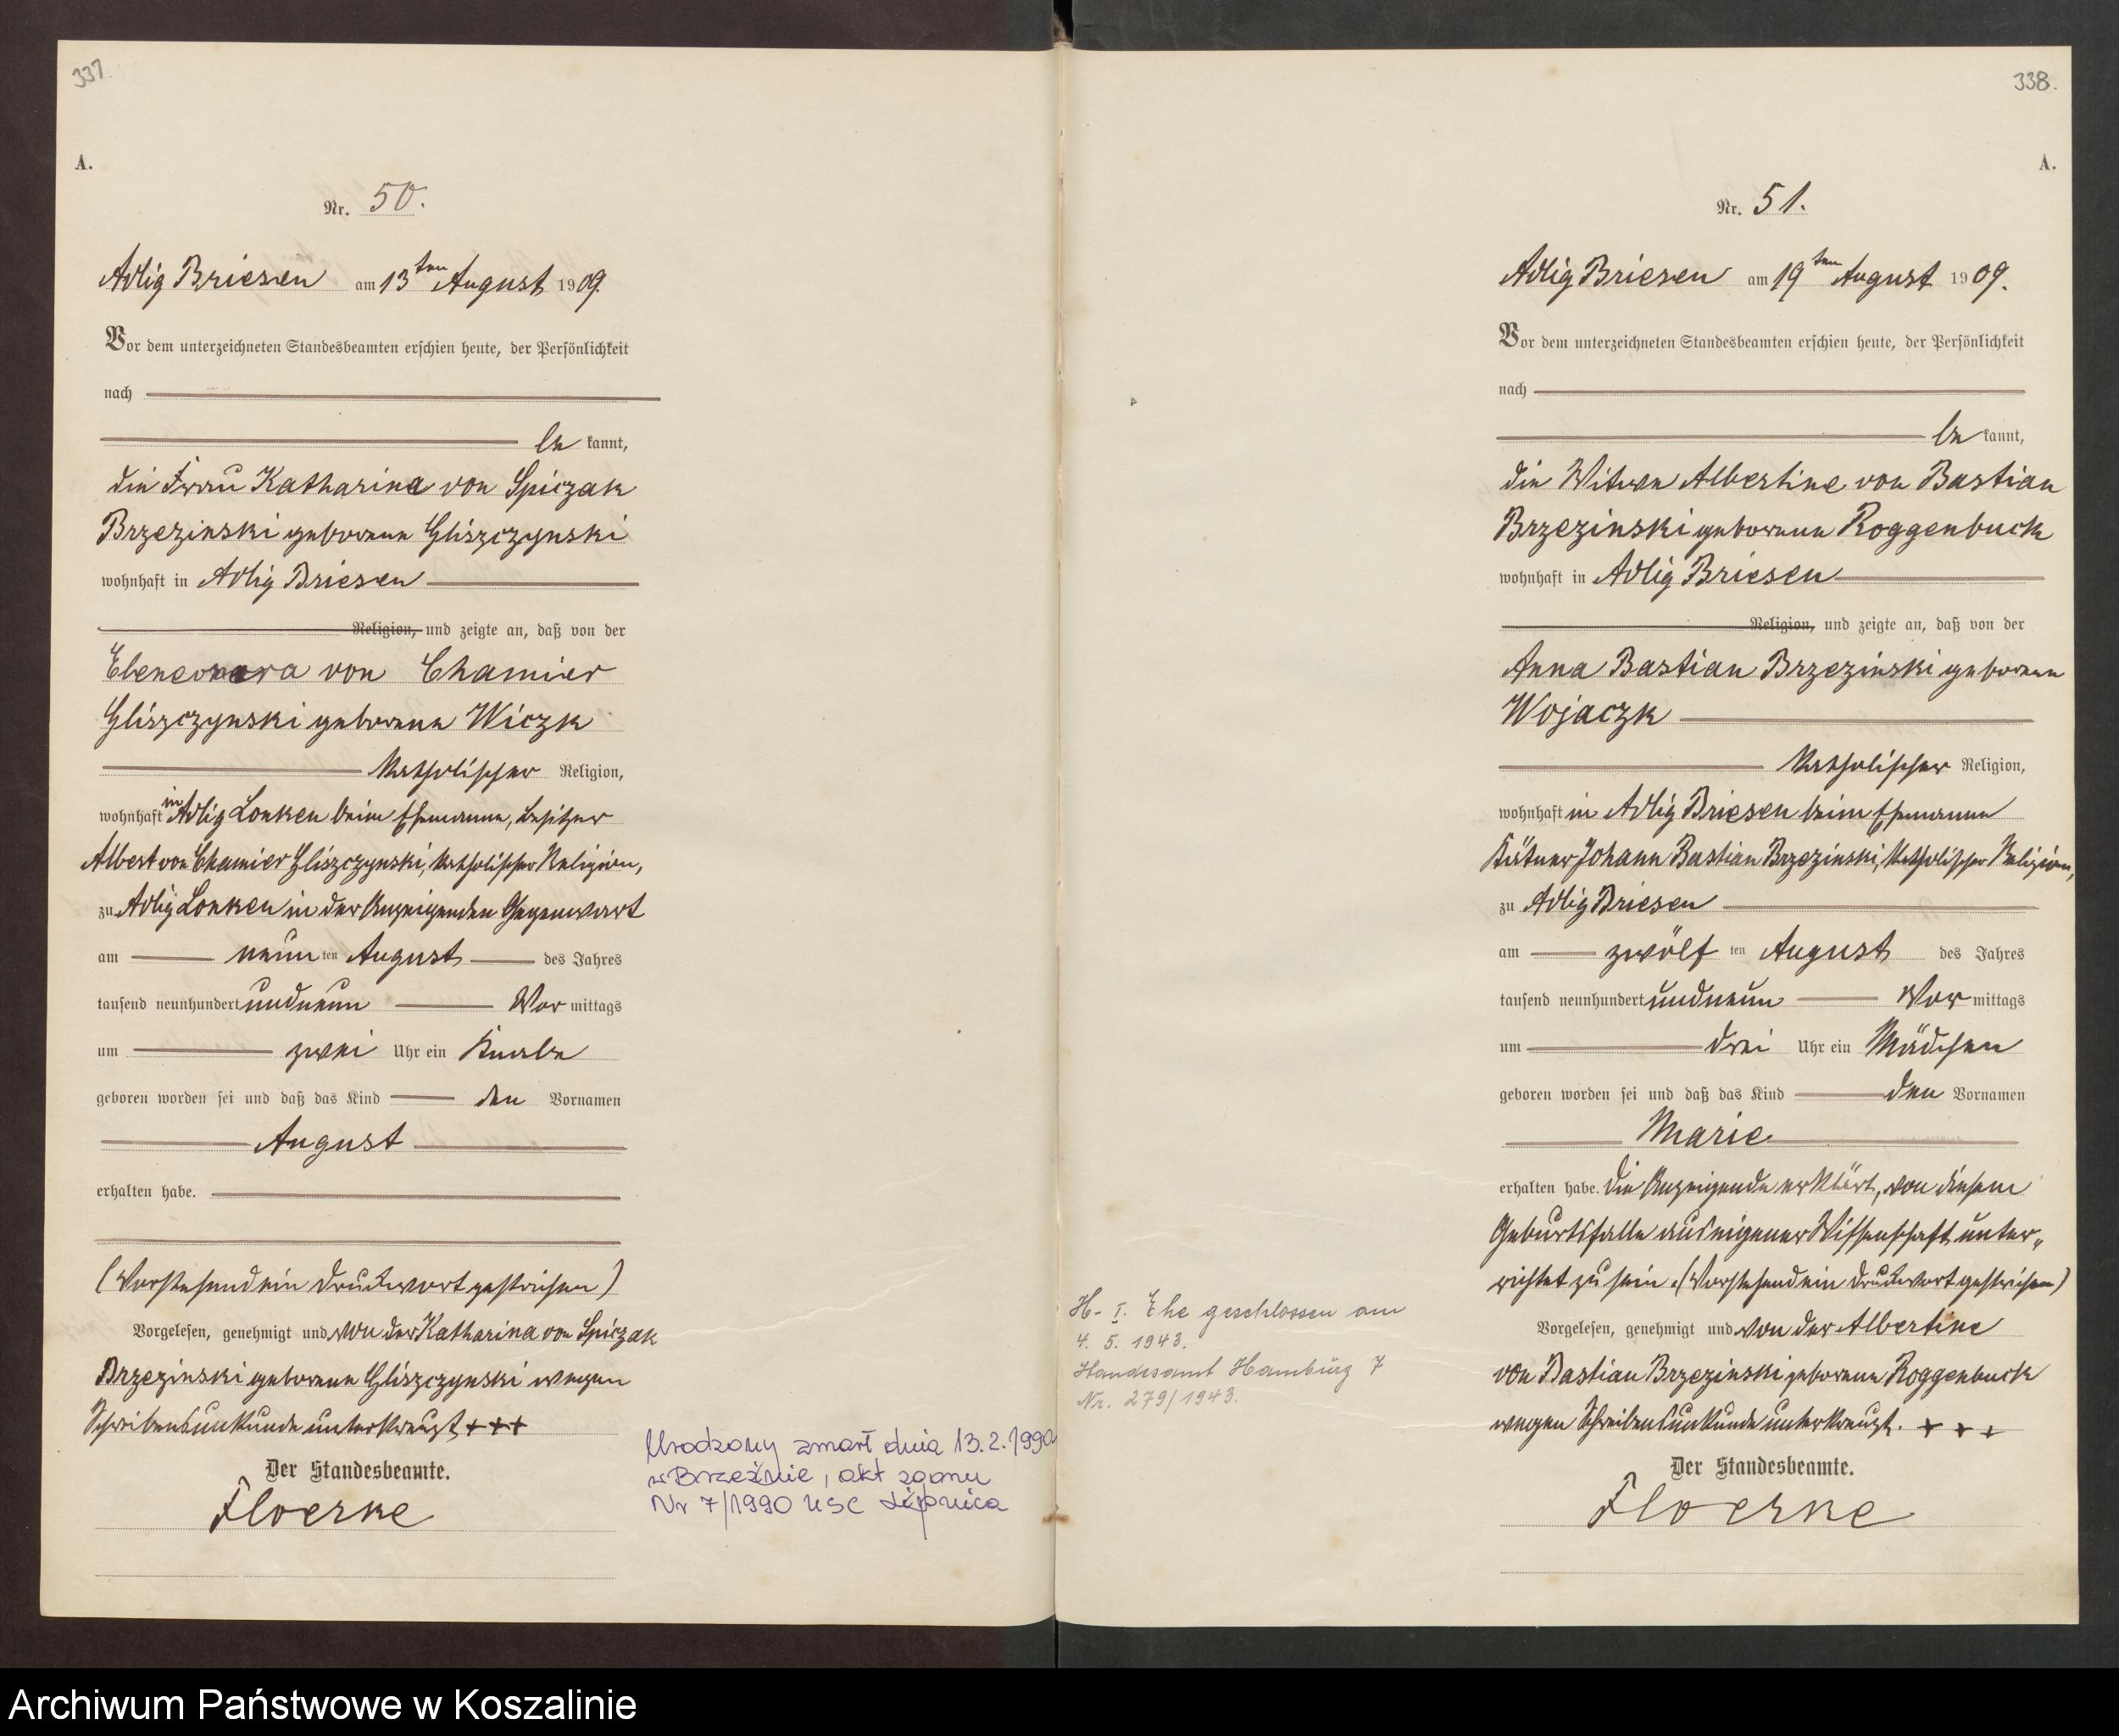 337.
A.
Nr. 50.
Adlig Briesen am 13ten August 1909.
Vor dem unterzeichneten Standesbeamten erschien heute, der Persönlichkeit
nach
be kannt,
die Frau Katharina von Spiczak
Brzezinski geborene Gliszczynski
wohnhaft in Adlig Briesen
Religion, und zeigte an, daß von der
von Chamier
Gliszczynski geborene Wiczk
katholischer Religion,
wohnhaft in Adlig Lonken beim Ehemanne, Besitzer
Albert von Chamier Gliszczynski, katholischer Religion,
zu Adlig Lonken in der Anzeigenden Gegenwart
am neun ten August des Jahres
tausend neunhundert undneun Vor mittags
um zwei Uhr ein Knabe
geboren worden sei und daß das Kind den Vornamen
August
erhalten habe.
(Vorstehend ein Druckwort gestrichen)
Vorgelesen, genehmigt und von der Katharina von Spiczak
Brzezinski geborene Gliszczynski wegen
Schreibensunkunde unterkreuzt +++
Der Standesbeamte.
Floerke
Urodzony zmarł dnia 13.2.1990
w Brzeźnie, akt zgonu
Nr 7/1990 USC Lipnica
338.
A.
Nr. 51.
Adlig Briesen am 19ten August 1909.
Vor dem unterzeichneten Standesbeamten erschien heute, der Persönlichkeit
nach
be kannt,
die Witwe Albertine von Bastian
Brzezinski geborene Roggenbuck
wohnhaft in Adlig Briesen
Religion, und zeigte an, daß von der
Anna Bastian Brzezinski geborene
Wojaczk
katholischer Religion,
wohnhaft in Adlig Briesen beim Ehemanne
Kätner Johann Bastian Brzezinski, katholischer Religion,
zu Adlig Briesen
am zwölf ten August des Jahres
tausend neunhundert undneun Vor mittags
um drei Uhr ein Mädchen
geboren worden sei und daß das Kind den Vornamen
Marie
erhalten habe. Die Anzeigende erklärt, von diesem
Geburtsfalle aus eigener Wissenschaft unter„
richtet zu sein. (Vorstehend ein Druckwort gestrichen)
Vorgelesen, genehmigt und von der Albertine
von Bastian Brzezinski geborene Roggenbuck
wegen Schreibensunkunde unterkreuzt. + + +
Der Standesbeamte.
Floerke
H- I. Ehe geschlossen am
4. 5. 1943.
Standesamt Hamburg 7
Nr. 279/1943.
Archiwum Państwowe w Koszalinie